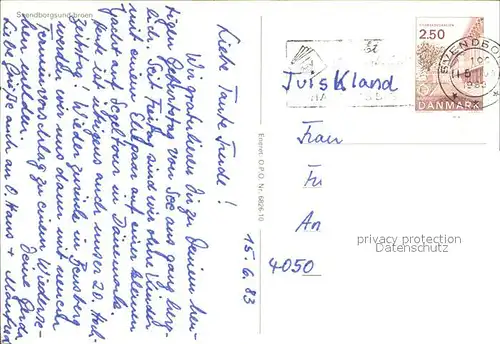 Svendborgsundbroen
Liebe Tante Trude!
Wir gratulieren Dir zu Deinem heu-
tigen Geburtstag von See aus ganz herz-
lich. Seit Freitag sind wir ohne Kinder
mit einem Ehepaar auf einer kleinen
Yacht auf Segeltour in Dänemark.
Heute ist übrigens auch unser 20. Hoch-
zeitstag! Wieder zurück in Bensberg
werden wir uns dann mit neuem
Terminvorschlag zu einem Wiederse-
hen melden. Deine Gerda
Liebe Grüße auch an O. Hans + Manfred
15.6.83
Eneret D.P.O. Nr. 6826-10
2.50
DANMARK
SVENDBORG
Tuiskland
Frau
Fu
An
4050
privacy protection
VILLEARDS.DE